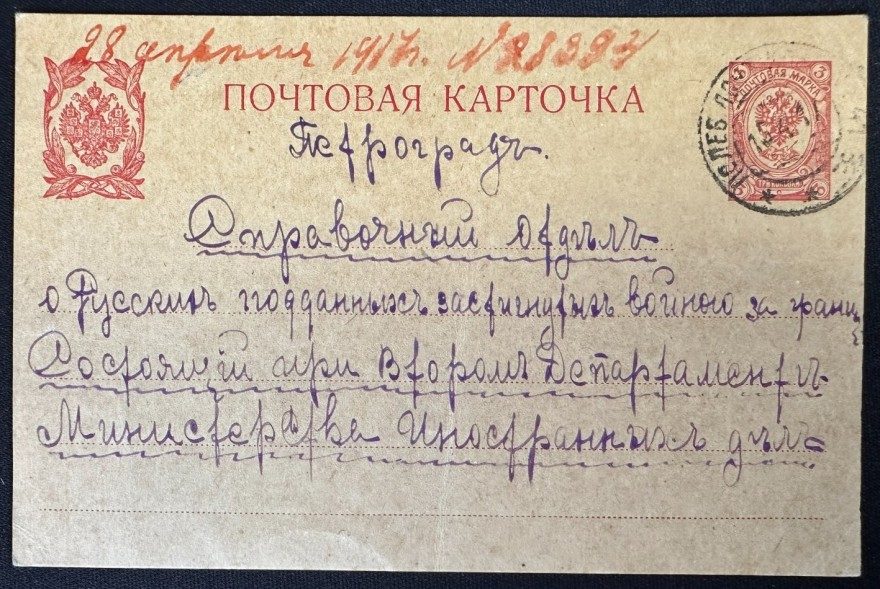 28 апреля 1917г. N 28393
ПОЧТОВАЯ КАРТОЧКА
ПОЧТОВАЯ МАРКА
3 3
Петроградъ.
Справочный отдѣлъ
о Русскихъ подданныхъ застигнутыхъ войною за грани
Состоящій при Второмъ Департаментѣ
Министерства Иностранныхъ дѣлъ